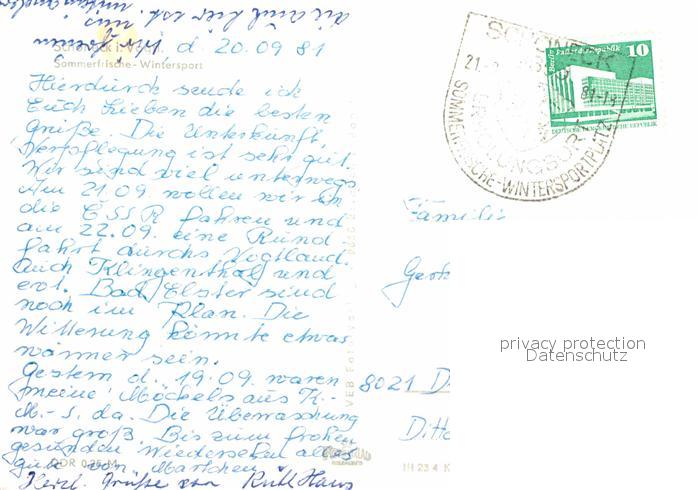 d. 20.09 81
Sommerfrische - Wintersport
Hierdurch sende ich
Euch Lieben die besten
Grüße. Die Unterkunft,
Verpflegung ist sehr gut.
Wir sind viel unterwegs
Am 21.09 wollen wir in
die ČSSR fahren und
am 22.09. eine Rund
fahrt durchs Vogtland.
Auch Klingenthal und
evt. Bad Elster sind
noch im Plan. Die
Witterung könnte etwas
wärmer sein.
Gestern d. 19.09. waren
meine Möckels aus K.-
M.-S. da. Die Überraschung
war groß. Bis zum frohen
gesunden Wiedersehen alles
gute von
DDR 0,25 M
Herzl. Grüße von Ruth Haus
SCHÖNECK
ERHOLUNGSORT
SOMMERFRISCHE-WINTERSPORTPLATZ
Berlin, Palast der Republik 10
DEUTSCHE DEMOKRATISCHE REPUBLIK
Familie
Gerh
8021 D
privacy protection
Datenschutz